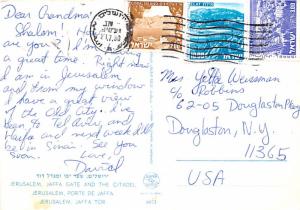 Dear Grandma,
Shalom,
are you? I'm
a great time. Right now
I am in Jerusalem
and from my window
I have a great view
of the Old City.
to Tel Aviv and
Haifa and next week I'll
be in Sinai. See you
Soon. Love,
David
ירושלים
ISRAEL
ISRAEL
Mrs Yette Weissman
c/o Robbins
62-05 Douglaston Pkwy
Douglaston, N.Y.
11365
USA
JERUSALEM, JAFFA GATE AND THE CITADEL
JERUSALEM, PORTE DE JAFFA
JERUSALEM, JAFFA TOR